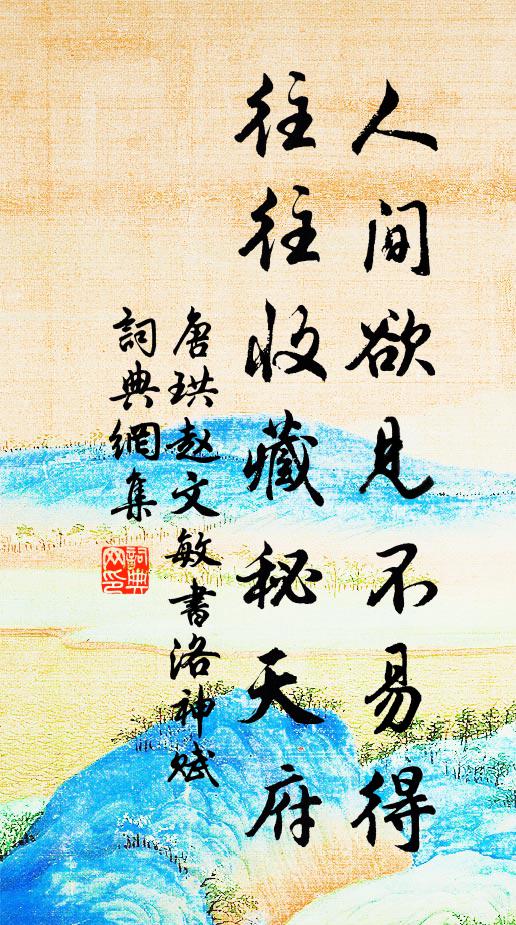 人間欲見不易得
往往收藏秘天府
唐珙赵文敏書洛神賦
詞典網集
詞典
网印